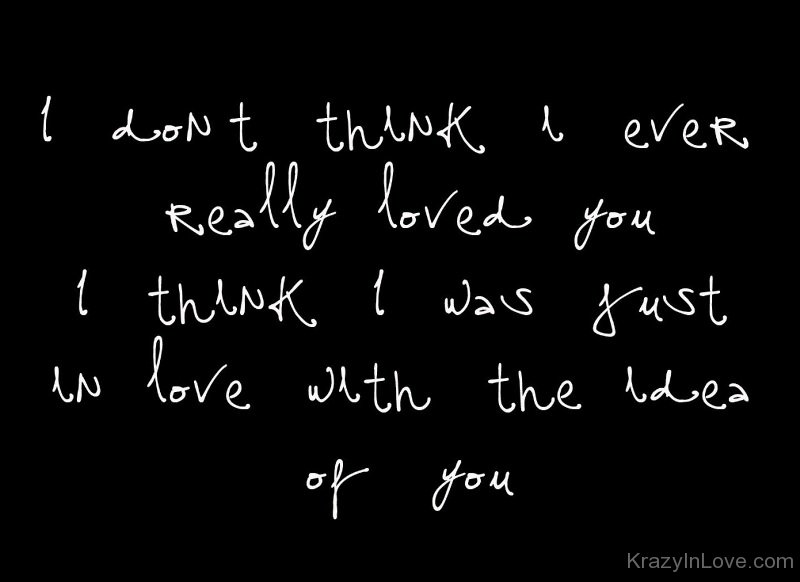 I don t think i ever
really loved you
I think I was just
in love with the idea
of you
KrazyInLove.com